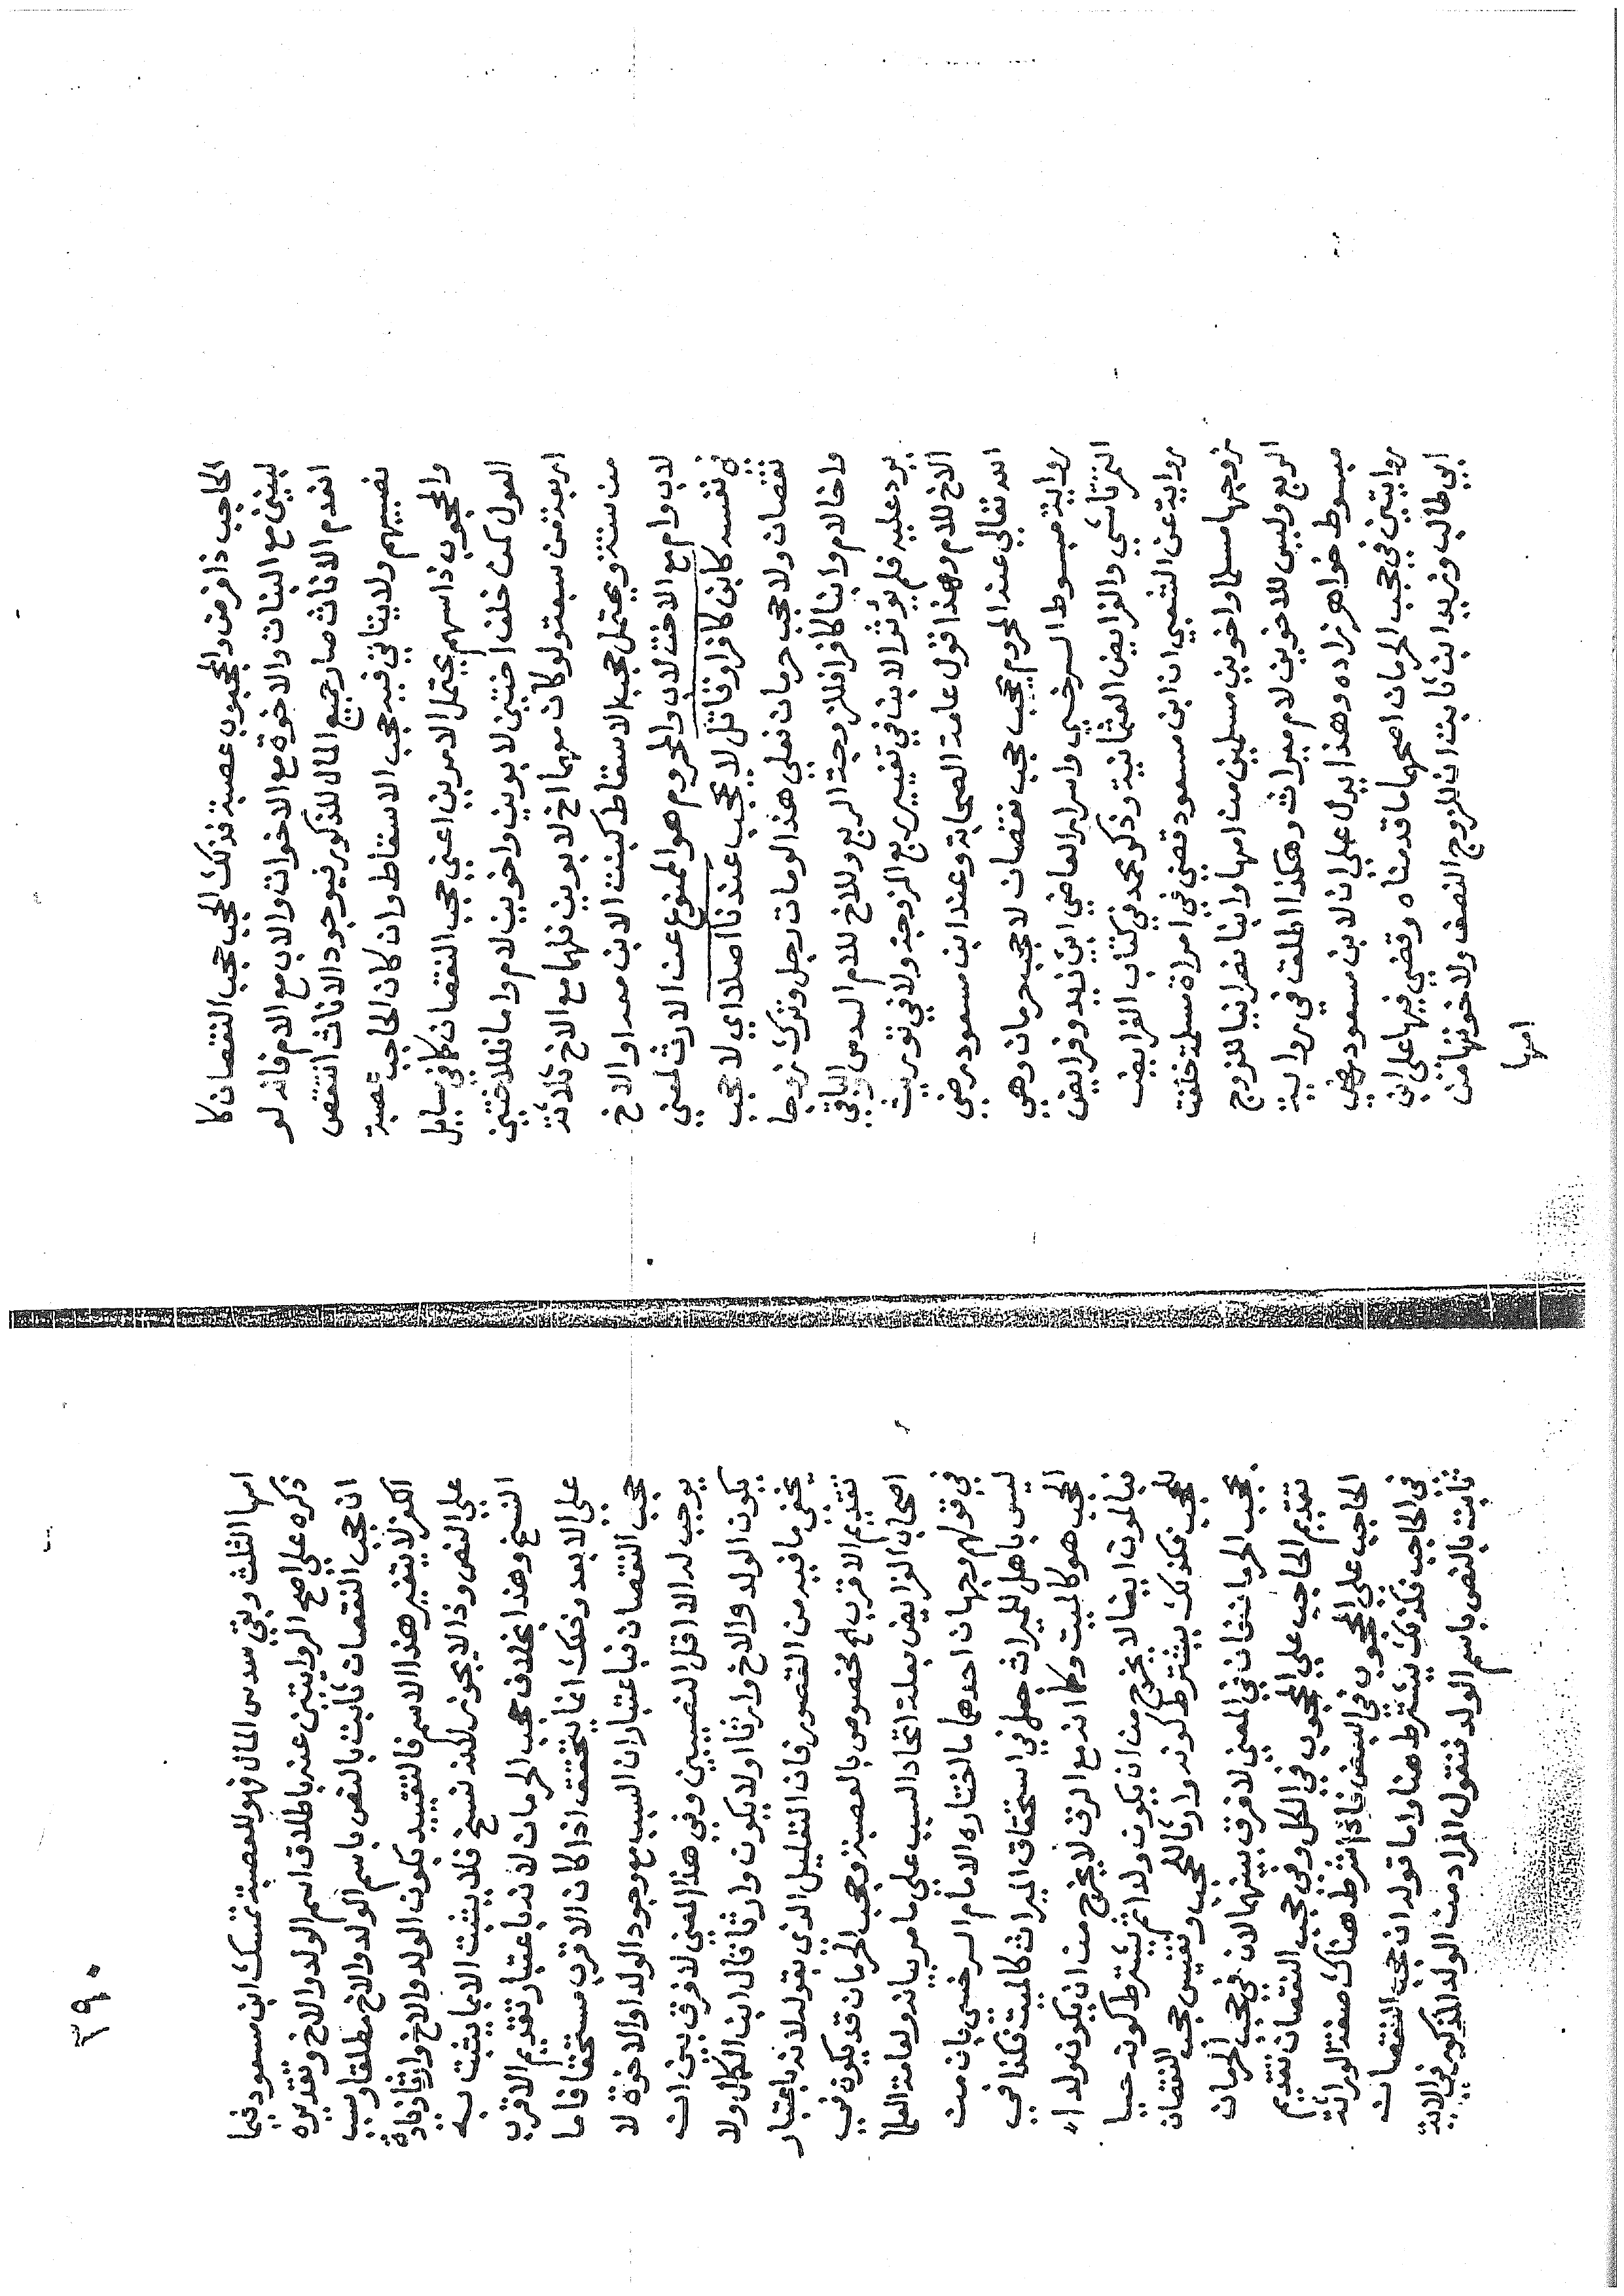 الحاجب ذا فرض والمحجوب عصبة فذلك الحجب حجب النقصان كا
لبنين مع البنات والاخوة مع الاخوات والاب مع الام فانه لو
انعدم الاناث صار جميع المال للذكور فبوجود الاناث انتقص
نصيبهم ولا يتاتي فيه حجب الاسقاط وان كان الحاجب عصبة
والمحجوب ذا سهم يحتمل الامرين اعني حجب النقصان كما في مسايل
العول كمن خلف اختين لابوين واخوين لام واما فللاختين
اربعة من سبعة ولو كان معهما اخ لابوين فلهما مع الاخ ثلاثة
من ستة ويحتمل حجب الاسقاط كبنت الابن معه او الاخ
لاب وام مع الاخت لاب والمحروم هو الممنوع عن الارث لمعني
في نفسه كابن كافر او قاتل لا يحجب عندنا اصلا اي لا حجب
نقصان ولا حجب حرمان فعلي هذا لو مات رجل وترك زوجا
واخا لام وابنا كافرا فللزوجة الربع وللاخ للام السدس والباقي
يرد عليه فلم يؤثر الابن في تغيير ربع الزوجة ولا في توريث
الاخ للام وهذا قول عامة الصحابة وعند ابن مسعود رضي
الله تعالي عنه المحروم يحجب حجب نقصان لا حجب حرمان وهي
رواية مبسوط السرخسي واسرار القاضي ابي زيد وفرايض
التمرتاشي والفرايض العثمانية وذكر محمد في كتاب الفرايض
رواية عن الشعبي ان ابن مسعود قضي في امراة مسلمة خلفت
زوجها مسلما واخوين مسلمين من امها وابنا نصرانيا للزوج
الربع وليس للاخوين لام ميراث وهكذا المطلق في رواية
مبسوط خواهر زاده وهذا يدل علي ان لابن مسعود رضي
روايتين في حجب الحرمان اصحهما ما قدمناه وقضي فيها علي ابن
ابي طالب وزيد ابن ثابت ان للزوج النصف ولاخوتها من
امها
٣٩٠
امها الثلث وبقي سدس المال فهو للعصبة تمسك ابن مسعود فيما
ذكره علي اصح الروايتين عنه باطلاق اسم الولد والاخ وتقديره
ان حجب النقصان ثابت بالنص باسم الولد والاخ مطلقا وبسبب
الكفر لا يتغير هذا الاسم فالتقييد بكون الولد والاخ وارثا زيادة
علي النص وذا لا يجوز لكنه نسخ فلا يثبت الا بما يثبت به
النسخ وهذا بخلاف حجب الحرمان لانه باعتبار تقديم الاقرب
علي الابعد وذلك انما يتحقق اذا كان الاقرب مستحقا فاما
حجب النقصان فباعتبار ان السبب مع وجود الولد او الاخوة لا
يوجب له الا اقل النصيبين وفي هذا المعني لا فرق بين ان
يكون الولد والاخ وارثا او لا يكون وارثا قال ابن الكمال ولا
يخفي ما فيه من القصور فان التعليل الذي بقوله لانه باعتبار
تقديم الاقرب الخ مخصوص بالعصبة وحجب الحرمان قد يكون في
اصحاب الفرايض بعلة اتحاد السبب علي ما مر بيانه ولعامة العلما
في قولهم وجهان احدهما ما اختاره الامام السرخسي بان من
ليس باهل للميراث جعل في استحقاق الميراث كالميت فكذا في
الحجب هو كالميت وكما انه مع الرق لا يخرج من ان يكون ولداء
فبالموت ايضا لا يخرج من ان يكون ولدا ثم يشترط كونه حيا
للحجب فكذلك يشترط كونه وارثا للحجب ونقيس حجب النقصان
بحجب الحرمان فان في المعني لا فرق بينهما لان في حجب الحرمان
تقديم الحاجب علي المحجوب في الكل وفي حجب النقصان تقديم
الحاجب علي المحجوب في البعض فاذا شرط هناك صفة الوراثة
في الحاجب فكذلك يشترط هنا واما قوله ان حجب النقصان
ثابت بالنص باسم الولد فنقول المراد من الولد المذكور في الاية